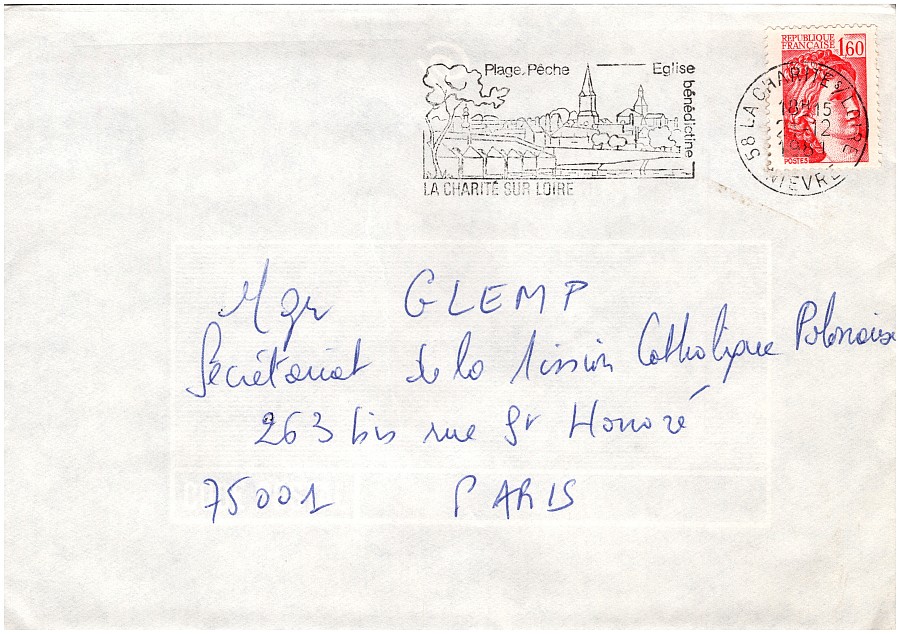 Plage, Pêche Eglise bénédictine
LA CHARITÉ SUR LOIRE
REPUBLIQUE
FRANÇAISE 1,60
POSTES
58 LA CHARITE S/LOIRE
18H15
12
NIEVRE
Mgr GLEMP
Secrétariat de la Mission Catholique Polonaise
263 bis rue St Honoré
75001 PARIS